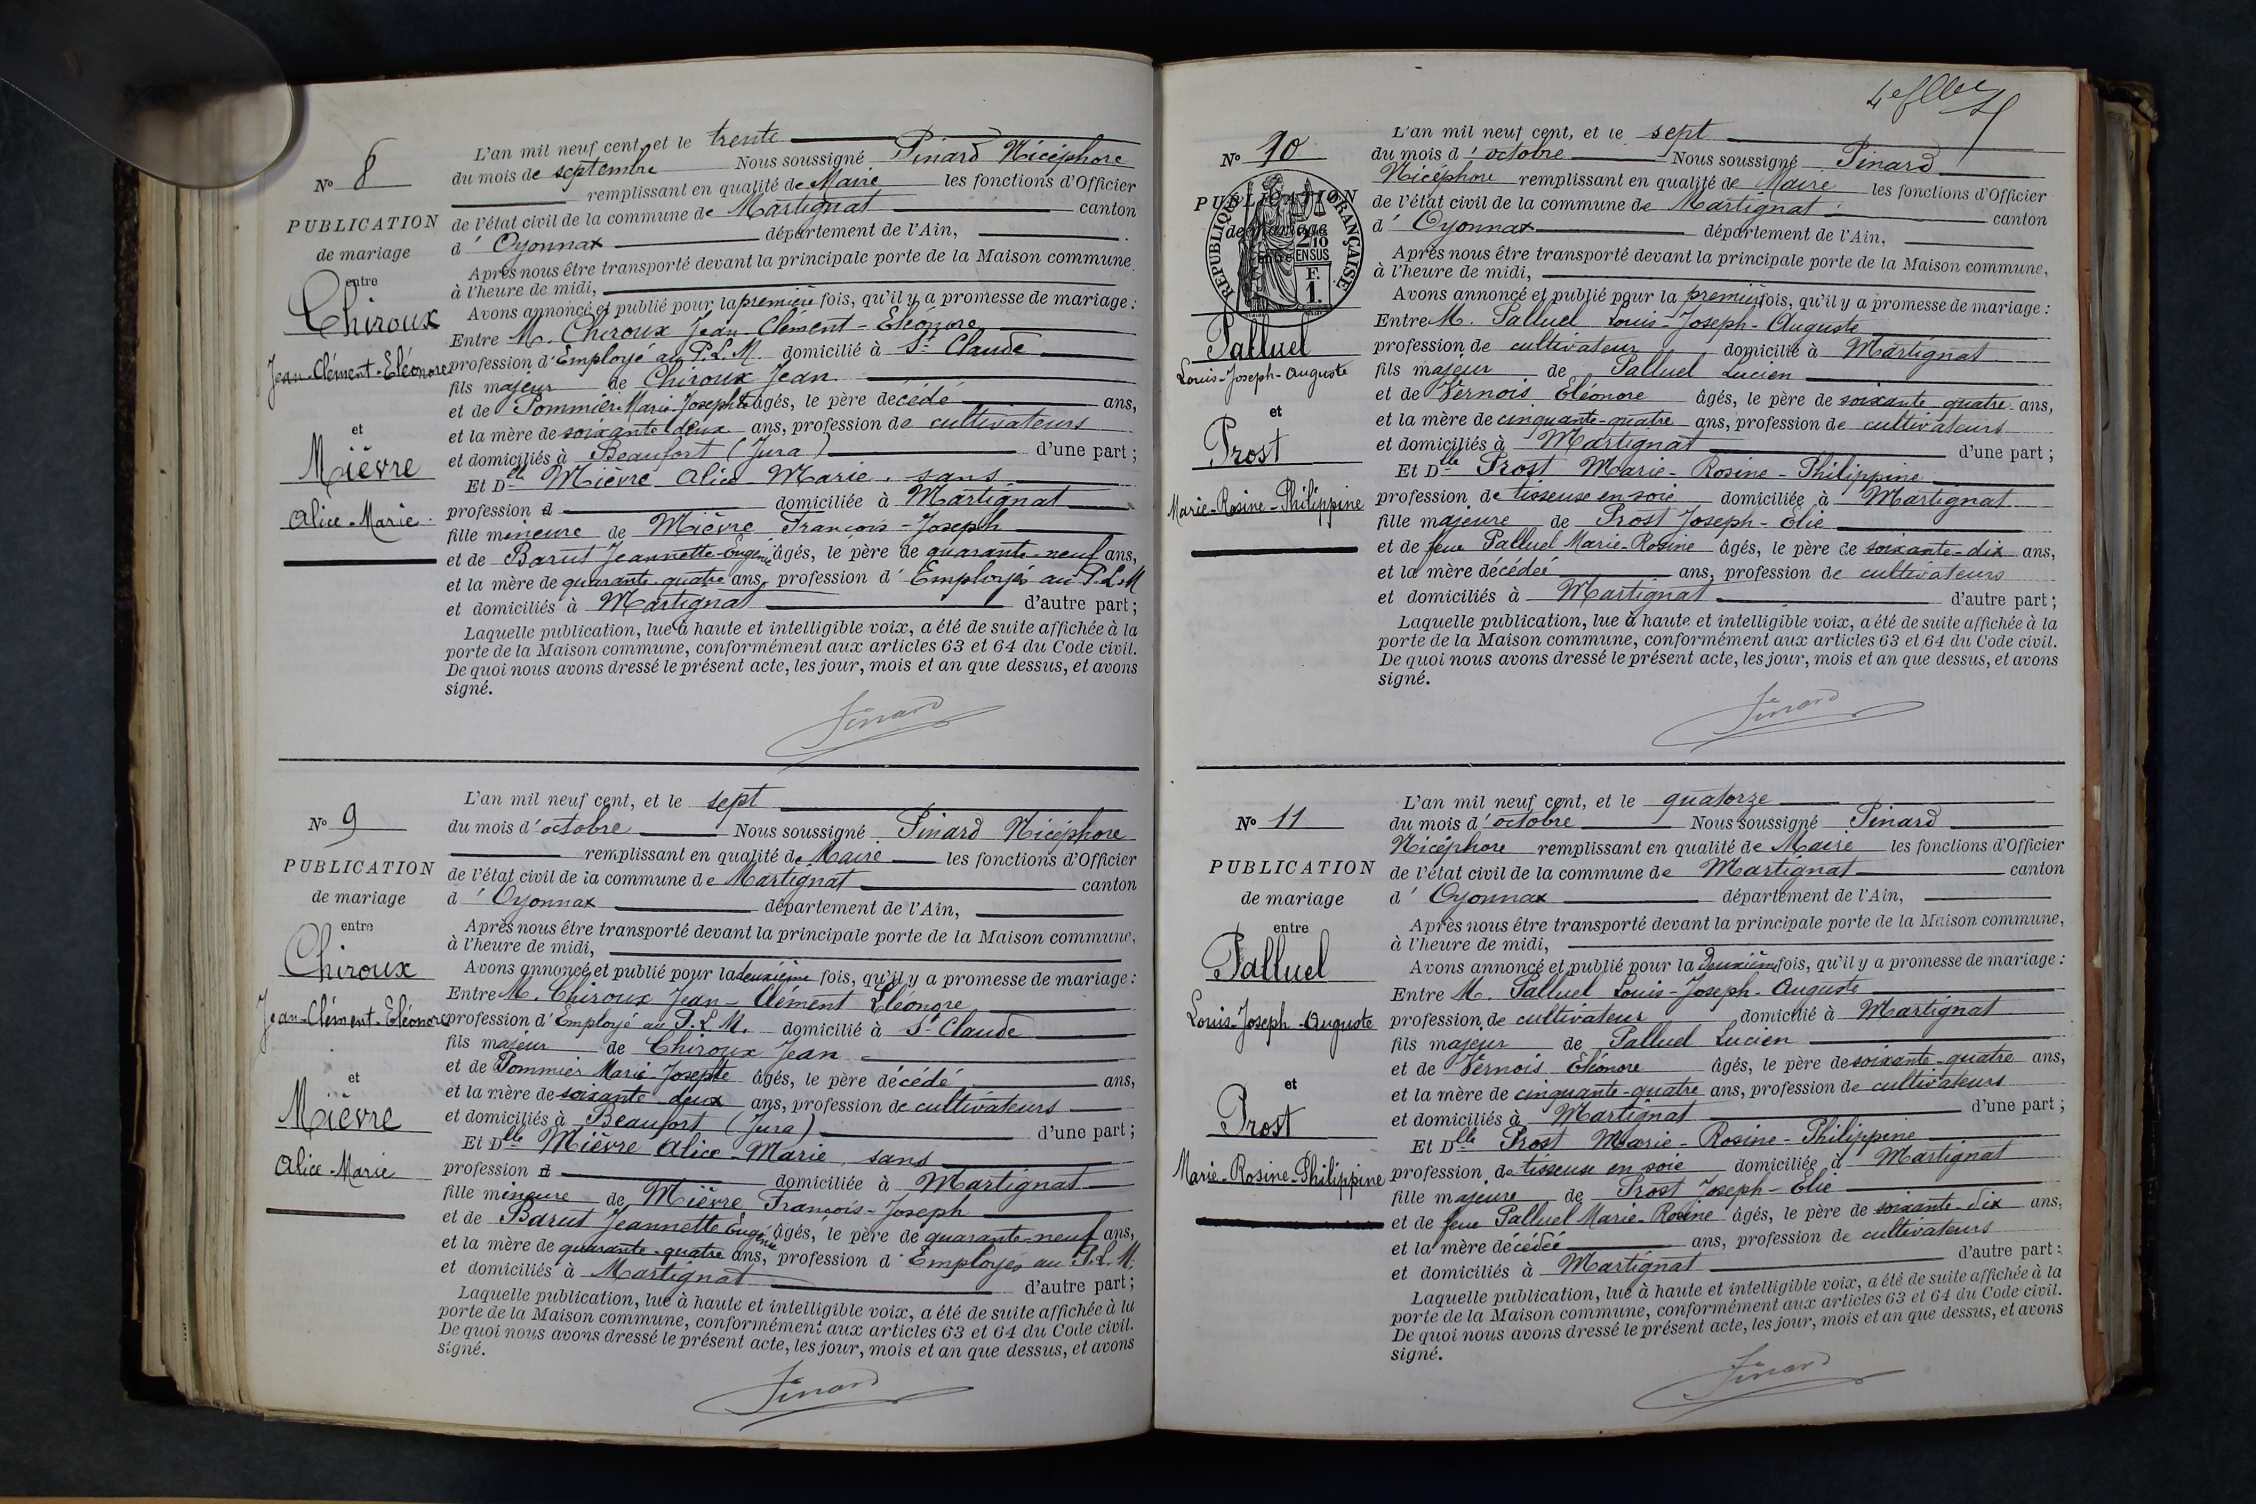 N° 8
PUBLICATION
de mariage
entre
Chiroux
Jean-Clément-Eléonore
et
Mièvre
Alice-Marie.
L'an mil neuf cent, et le trente
du mois de septembre Nous soussigné Pinard Nicéphore
remplissant en qualité de Maire les fonctions d'Officier
de l'état civil de la commune de Martignat canton
d' Oyonnax département de l'Ain,
Après nous être transporté devant la principale porte de la Maison commune
à l'heure de midi,
Avons annoncé et publié pour la première fois, qu'il y a promesse de mariage:
Entre M. Chiroux Jean-Clément-Eléonore
profession d'Employé au P.L.M. domicilié à St Claude
fils majeur de Chiroux Jean
et de Pommier Marie-Josephte âgés, le père décédé ans,
et la mère de soixante deux ans, profession de cultivateurs
et domiciliés à Beaufort (Jura) d'une part;
Et Dlle Mièvre Alice-Marie, sans
profession d domiciliée à Martignat
fille mineure de Mièvre François-Joseph
et de Barut Jeannette-Eugénie âgés, le père de quarante-neuf ans,
et la mère de quarante-quatre ans, profession d' Employés au P.L.M
et domiciliés à Martignat d'autre part;
Laquelle publication, lue à haute et intelligible voix, a été de suite affichée à la
porte de la Maison commune, conformément aux articles 63 et 64 du Code civil.
De quoi nous avons dressé le présent acte, les jour, mois et an que dessus, et avons
signé.
Pinard
N° 9
PUBLICATION
de mariage
entre
Chiroux
Jean-Clément-Eléonore
et
Mièvre
Alice-Marie
L'an mil neuf cent, et le sept
du mois d'octobre Nous soussigné Pinard Nicéphore
remplissant en qualité de Maire les fonctions d'Officier
de l'état civil de la commune de Martignat canton
d' Oyonnax département de l'Ain,
Après nous être transporté devant la principale porte de la Maison commune,
à l'heure de midi,
Avons annoncé et publié pour la deuxième fois, qu'il y a promesse de mariage:
Entre M. Chiroux Jean-Clément Eléonore
profession d'Employé au P.L.M. domicilié à St Claude
fils majeur de Chiroux Jean
et de Pommier Marie-Josephte âgés, le père décédé ans,
et la mère de soixante-deux ans, profession de cultivateurs
et domiciliés à Beaufort (Jura) d'une part;
Et Dlle Mièvre Alice-Marie, sans
profession d domiciliée à Martignat
fille mineure de Mièvre François-Joseph
et de Barut Jeannette Eugénie âgés, le père de quarante-neuf ans,
et la mère de quarante-quatre ans, profession d' Employés au P.L.M.
et domiciliés à Martignat d'autre part;
Laquelle publication, lue à haute et intelligible voix, a été de suite affichée à la
porte de la Maison commune, conformément aux articles 63 et 64 du Code civil.
De quoi nous avons dressé le présent acte, les jour, mois et an que dessus, et avons
signé.
Pinard
N° 10
PUBLICATION
de mariage
entre
RÉPUBLIQUE FRANÇAISE
2/10
EN SUS
F.
1.
Palluel
Louis-Joseph-Auguste
et
Prost
Marie-Rosine-Philippine
L'an mil neuf cent, et le sept
du mois d' octobre Nous soussigné Pinard
Nicéphore remplissant en qualité de Maire les fonctions d'Officier
de l'état civil de la commune de Martignat canton
d' Oyonnax département de l'Ain,
Après nous être transporté devant la principale porte de la Maison commune,
à l'heure de midi,
Avons annoncé et publié pour la première fois, qu'il y a promesse de mariage:
Entre M. Palluel Louis-Joseph-Auguste
profession de cultivateur domicilié à Martignat
fils majeur de Palluel Lucien
et de Vernois Eléonore âgés, le père de soixante quatre ans,
et la mère de cinquante-quatre ans, profession de cultivateurs
et domiciliés à Martignat d'une part;
Et Dlle Prost Marie-Rosine-Philippine
profession de tisseuse en soie domiciliée à Martignat
fille majeure de Prost Joseph-Elie
et de feue Palluel Marie-Rosine âgés, le père de soixante-dix ans,
et la mère décédée ans, profession de cultivateurs
et domiciliés à Martignat d'autre part;
Laquelle publication, lue à haute et intelligible voix, a été de suite affichée à la
porte de la Maison commune, conformément aux articles 63 et 64 du Code civil.
De quoi nous avons dressé le présent acte, les jour, mois et an que dessus, et avons
signé.
Pinard
N° 11
PUBLICATION
de mariage
entre
Palluel
Louis-Joseph-Auguste
et
Prost
Marie-Rosine-Philippine
L'an mil neuf cent, et le quatorze
du mois d'octobre Nous soussigné Pinard
Nicéphore remplissant en qualité de Maire les fonctions d'Officier
de l'état civil de la commune de Martignat canton
d' Oyonnax département de l'Ain,
Après nous être transporté devant la principale porte de la Maison commune,
à l'heure de midi,
Avons annoncé et publié pour la deuxième fois, qu'il y a promesse de mariage:
Entre M. Palluel Louis-Joseph-Auguste
profession de cultivateur domicilié à Martignat
fils majeur de Palluel Lucien
et de Vernois Eléonore âgés, le père de soixante-quatre ans,
et la mère de cinquante-quatre ans, profession de cultivateurs
et domiciliés à Martignat d'une part;
Et Dlle Prost Marie-Rosine-Philippine
profession de tisseuse en soie domiciliée à Martignat
fille majeure de Prost Joseph-Elie
et de feue Palluel Marie-Rosine âgés, le père de soixante-dix ans,
et la mère décédée ans, profession de cultivateurs
et domiciliés à Martignat d'autre part;
Laquelle publication, lue à haute et intelligible voix, a été de suite affichée à la
porte de la Maison commune, conformément aux articles 63 et 64 du Code civil.
De quoi nous avons dressé le présent acte, les jour, mois et an que dessus, et avons
signé.
Pinard